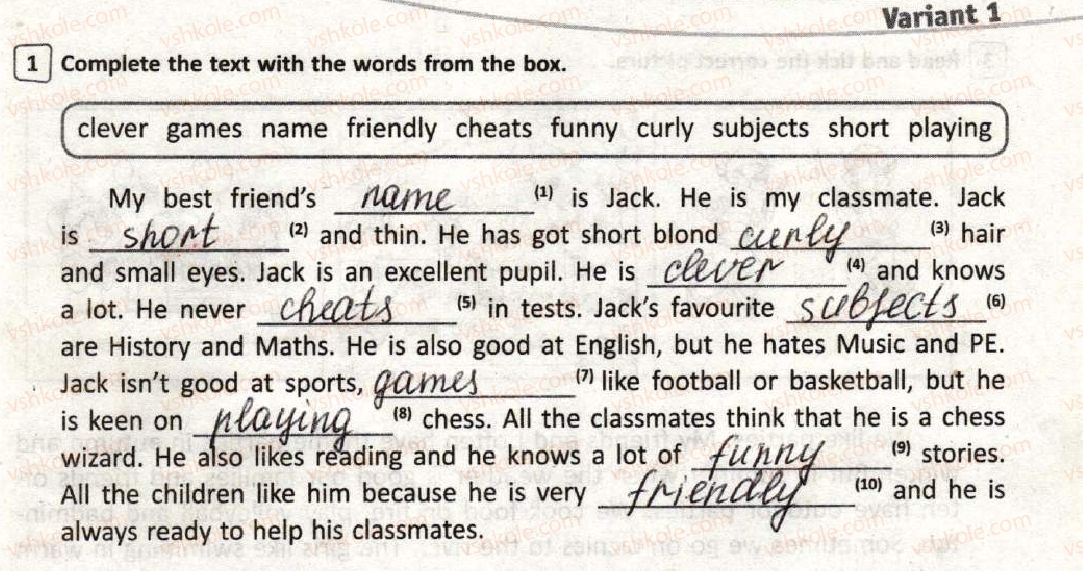 Variant 1
1 Complete the text with the words from the box.
clever games name friendly cheats funny curly subjects short playing
My best friend's name (1) is Jack. He is my classmate. Jack
is short (2) and thin. He has got short blond curly (3) hair
and small eyes. Jack is an excellent pupil. He is clever (4) and knows
a lot. He never cheats (5) in tests. Jack's favourite subjects (6)
are History and Maths. He is also good at English, but he hates Music and PE.
Jack isn't good at sports, games (7) like football or basketball, but he
is keen on playing (8) chess. All the classmates think that he is a chess
wizard. He also likes reading and he knows a lot of funny (9) stories.
All the children like him because he is very friendly (10) and he is
always ready to help his classmates.
vshkole.com